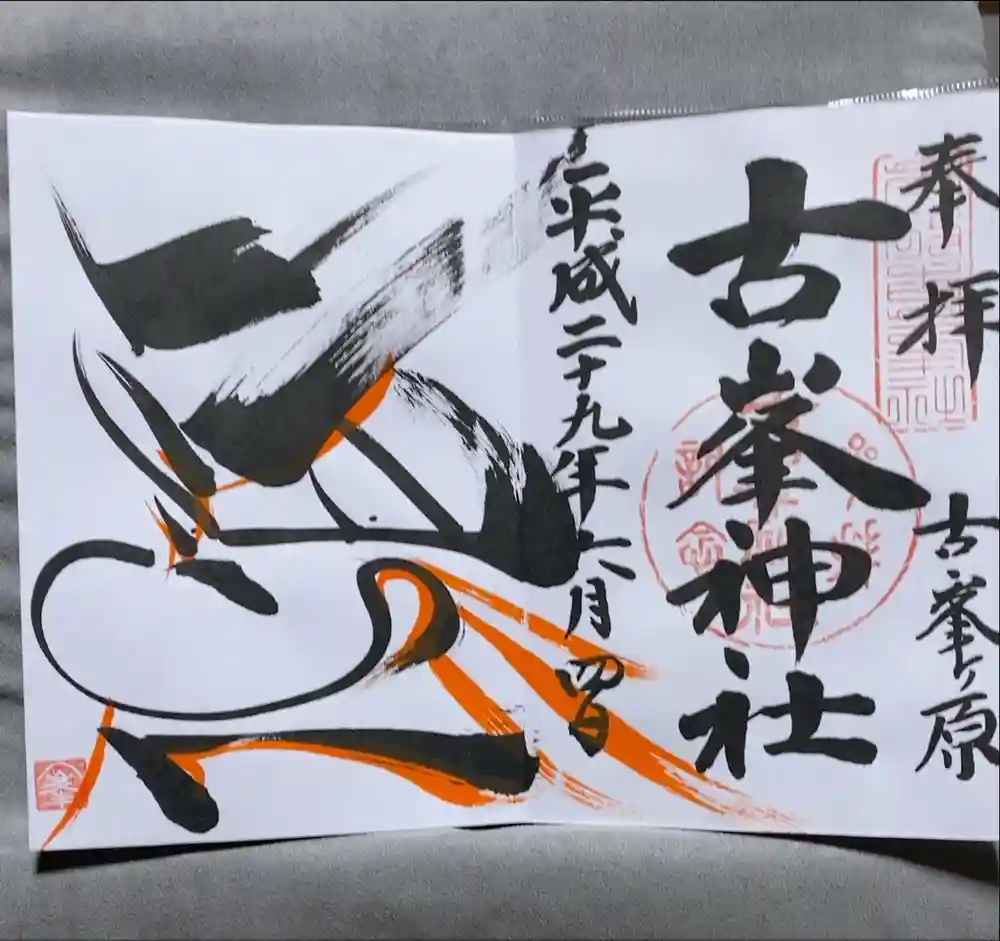 奉拝
古峯ヶ原
古峯神社
平成二十九年六月四日